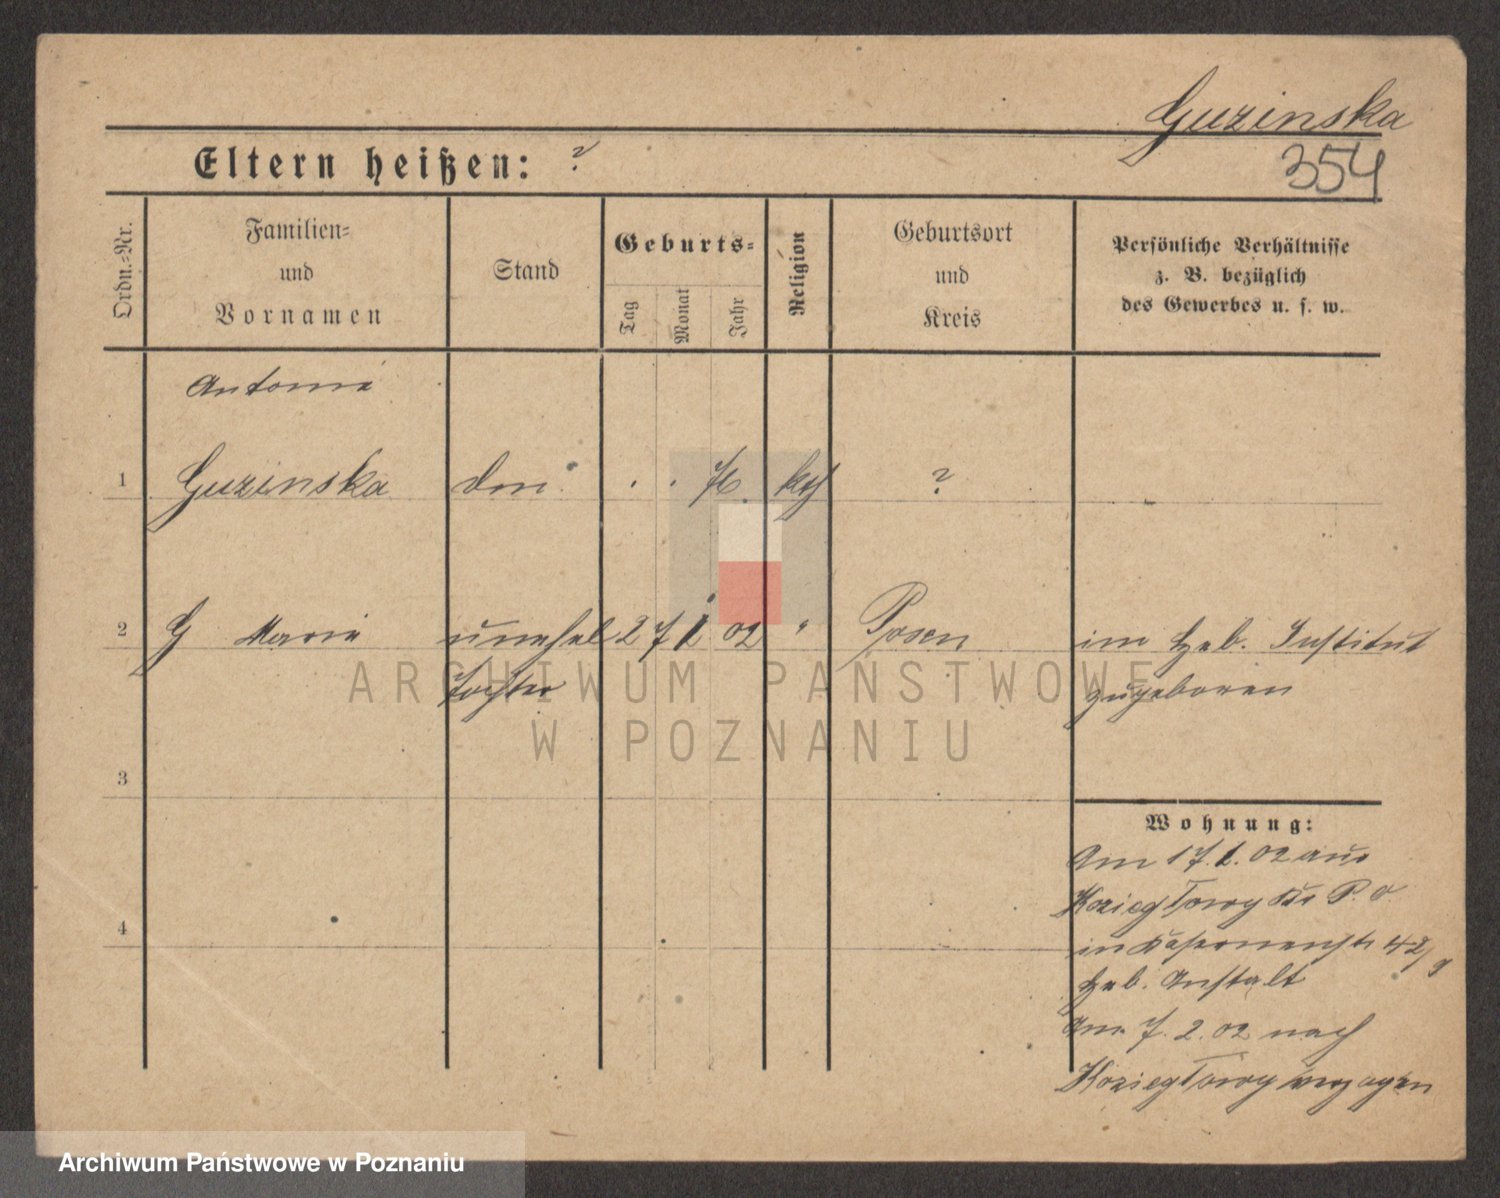 Guzinska
354
Eltern heißen: ?
Ordn.-Nr.
Familien-
und
Vornamen
Stand
Geburts-
Tag
Monat
Jahr
Religion
Geburtsort
und
Kreis
Persönliche Verhältnisse
z. B. bezüglich
des Gewerbes u. s. w.
Antonie
1 Guzinska . . kth ?
2 G Marie unehel 27 1 02 " Posen im Heb. Institut
Tochter zugeboren
3
4
Wohnung:
Am 17.1.02 aus
Koziegłowy Kr P. O.
in Kasernenstr 42/9
Heb. Anstalt
Am 7.2.02 nach
Koziegłowy verzogen
ARCHIWUM PAŃSTWOWE
W POZNANIU
Archiwum Państwowe w Poznaniu